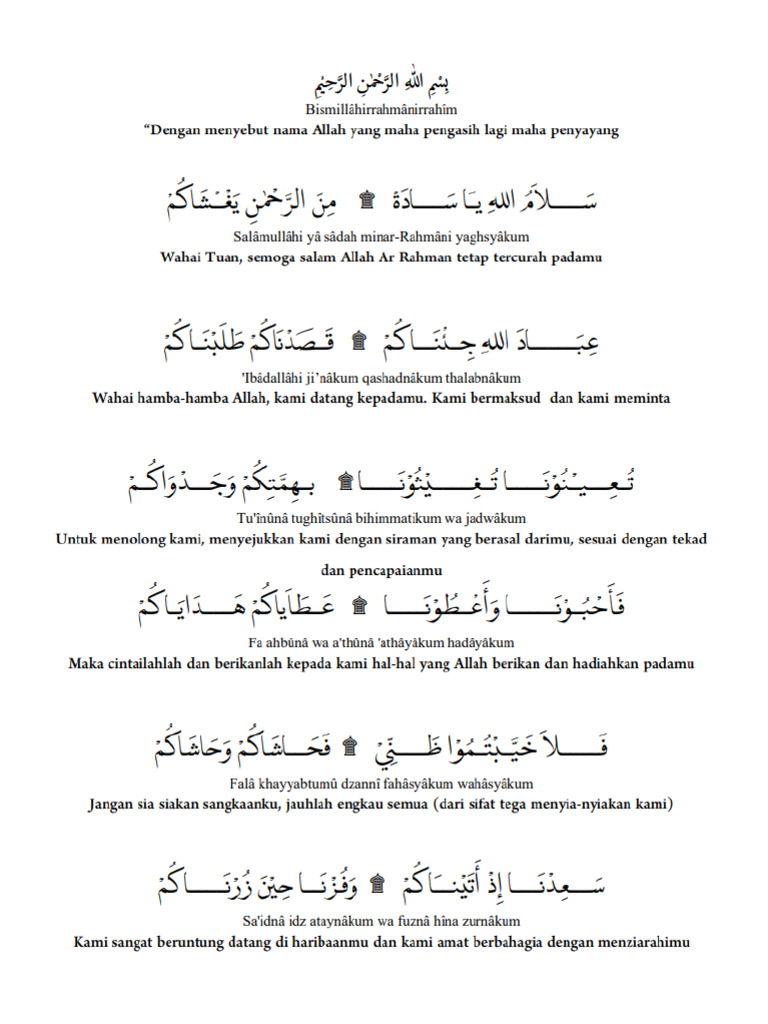 بِسْمِ اللهِ الرَّحْمٰنِ الرَّحِيْمِ
Bismillâhirrahmânirrahîm
“Dengan menyebut nama Allah yang maha pengasih lagi maha penyayang
سَـــلاَمُ اللهِ يَـا سَـــادَةْ ۩ مِنَ الرَّحْمٰنِ يَغْـشَاكُمْ
Salâmullâhi yâ sâdah minar-Rahmâni yaghsyâkum
Wahai Tuan, semoga salam Allah Ar Rahman tetap tercurah padamu
عِبَـــــادَ اللهِ جِـئْنَــاكُمْ ۩ قَـصَدْنَاكُمْ طَلَبْنَـاكُمْ
'Ibâdallâhi ji’nâkum qashadnâkum thalabnâkum
Wahai hamba-hamba Allah, kami datang kepadamu. Kami bermaksud dan kami meminta
تُـعِـيْـنُوْنَـــا تُـغِـــيْثُوْنَـــا ۩ بِـهِمَّتِكُمْ وَجَـــدْوَاكُـمْ
Tu'înûnâ tughîtsûnâ bihimmatikum wa jadwâkum
Untuk menolong kami, menyejukkan kami dengan siraman yang berasal darimu, sesuai dengan tekad
dan pencapaianmu
فَأَحْبُـوْنَـــــا وَأَعْـطُوْنَـــــا ۩ عَـطَايَاكُمْ هَـــدَايَـاكُمْ
Fa ahbûnâ wa a'thûnâ 'athâyâkum hadâyâkum
Maka cintailahlah dan berikanlah kepada kami hal-hal yang Allah berikan dan hadiahkan padamu
فَـــــلاَ خَيَّـبْتُـمُوْا ظَـــنِّيْ ۩ فَحَـــاشَاكُمْ وَحَاشَاكُمْ
Falâ khayyabtumû dzannî fahâsyâkum wahâsyâkum
Jangan sia siakan sangkaanku, jauhlah engkau semua (dari sifat tega menyia-nyiakan kami)
سَـــعِدْنَـــا إِذْ أَتَيْنـــَاكُمْ ۩ وَفُـزْنَـــا حِيْنَ زُرْنَـــــاكُمْ
Sa'idnâ idz ataynâkum wa fuznâ hîna zurnâkum
Kami sangat beruntung datang di haribaanmu dan kami amat berbahagia dengan menziarahimu